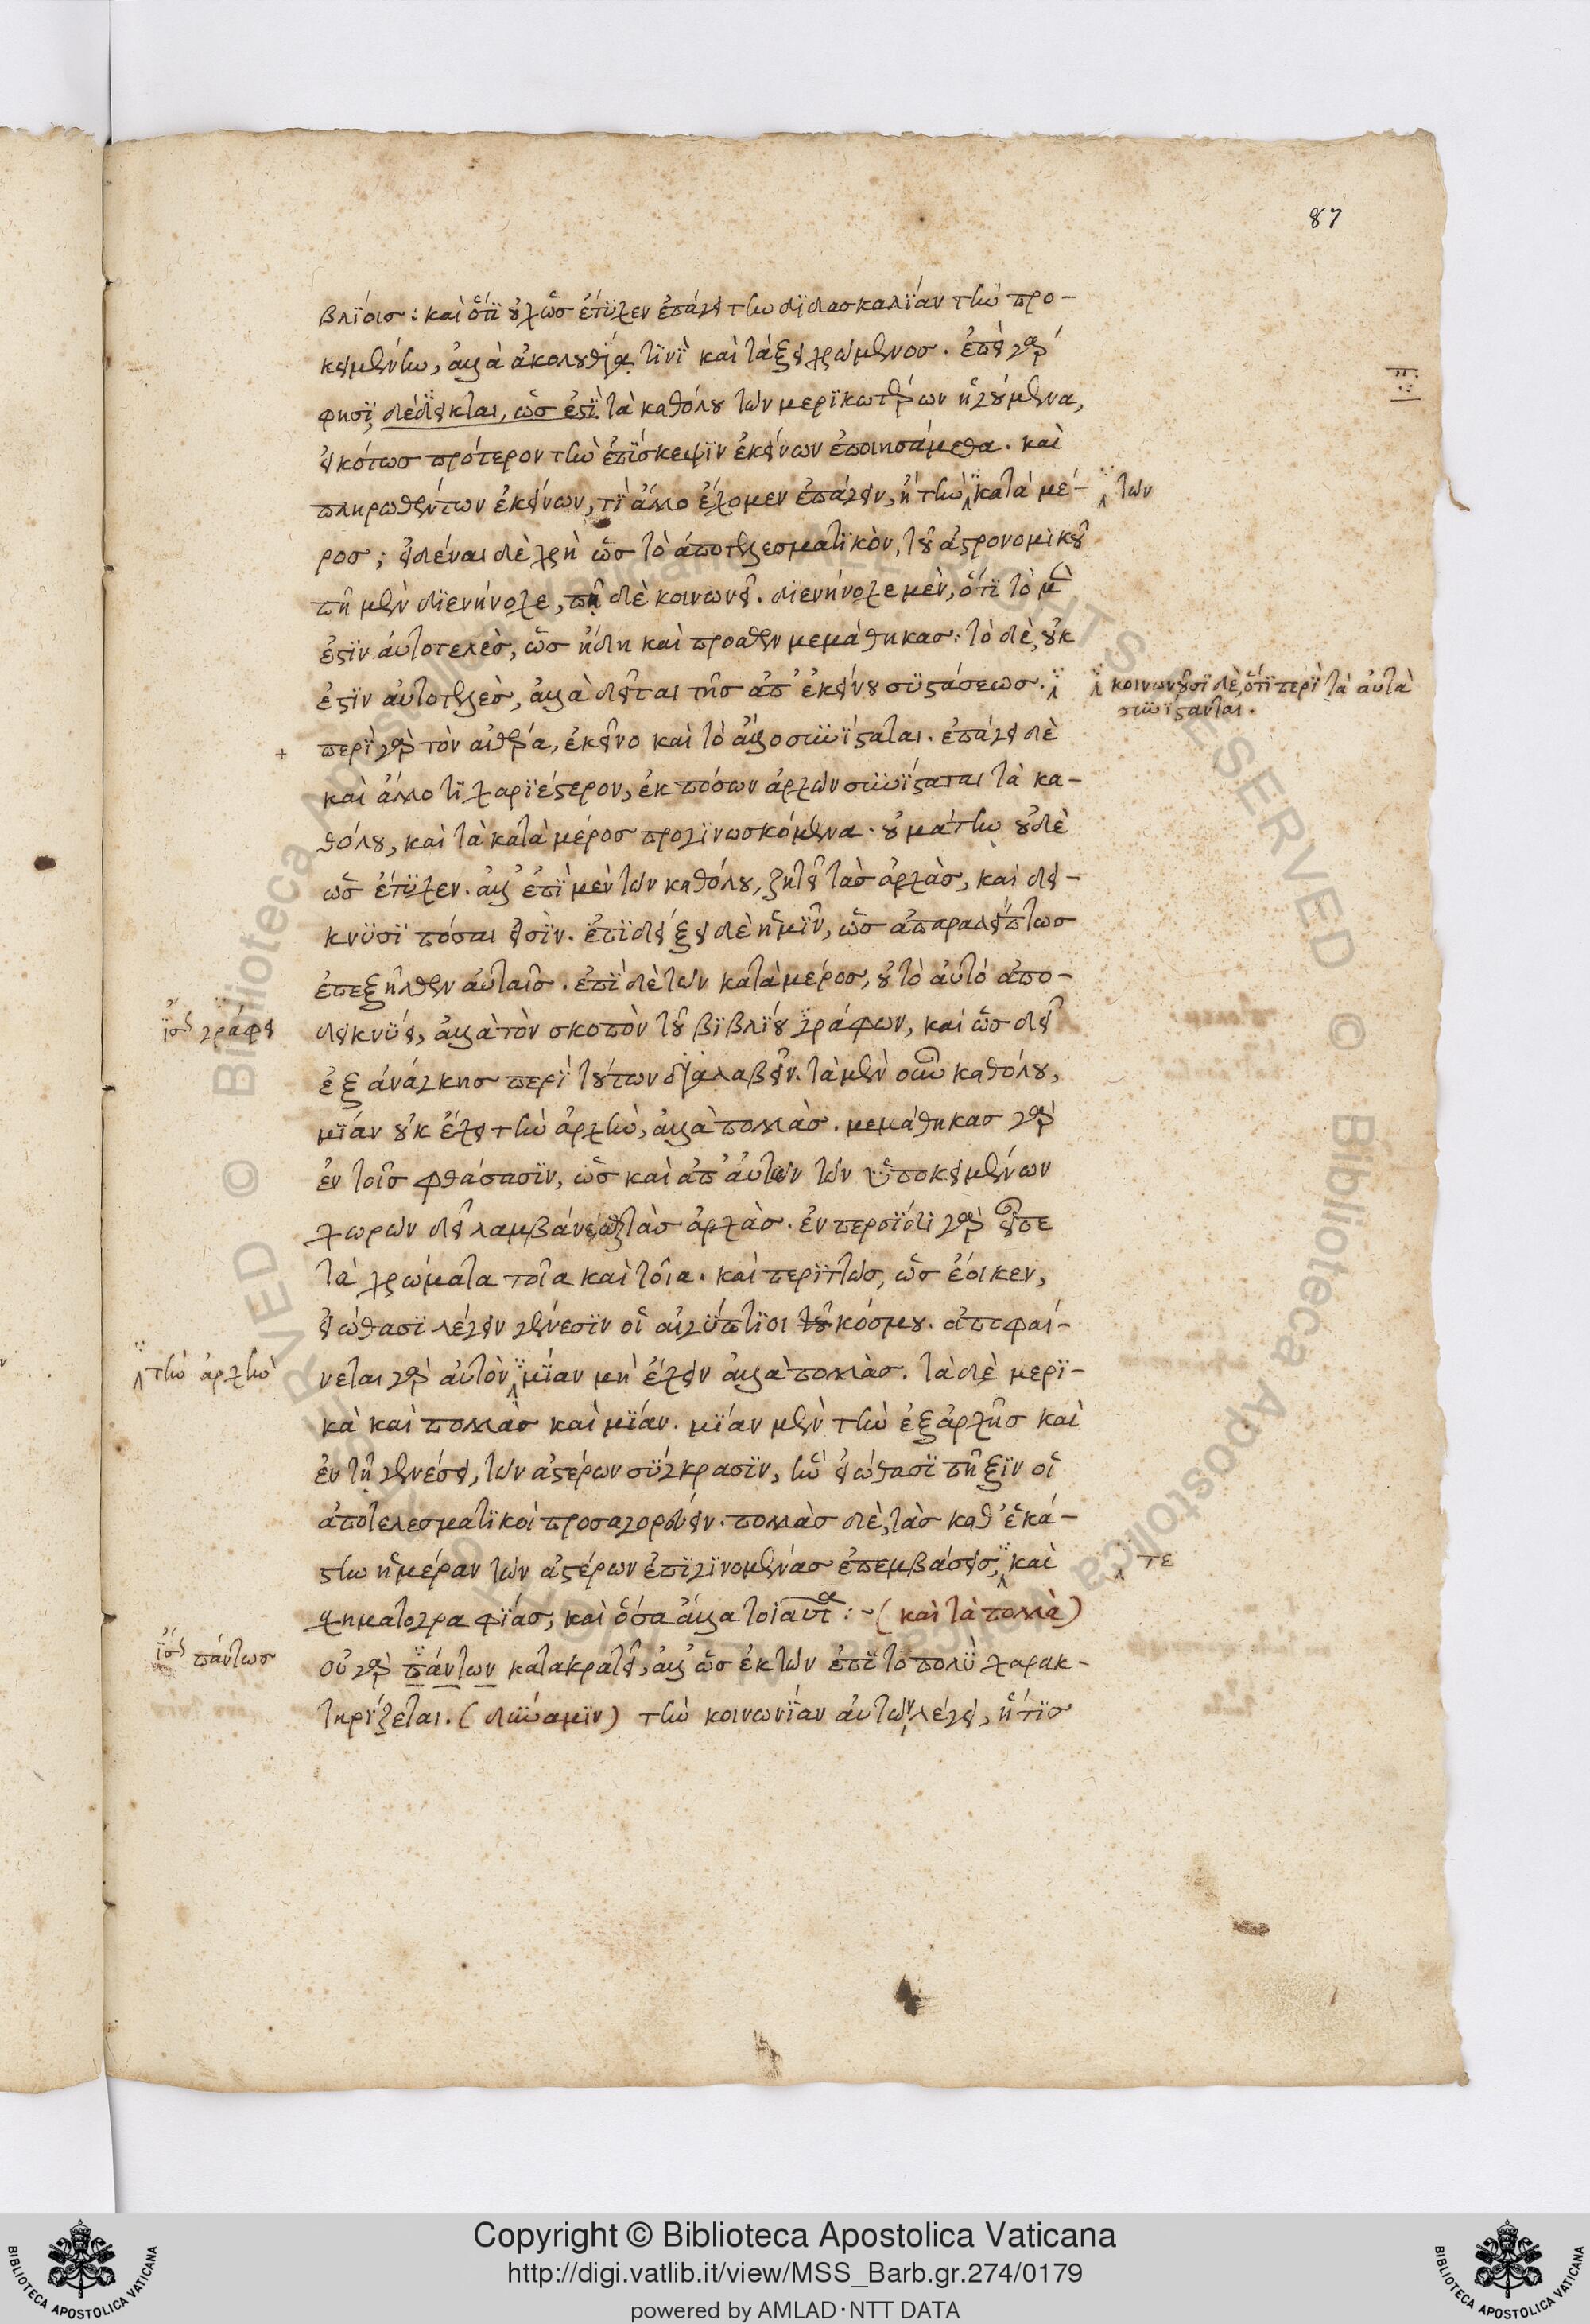 87
βλίοις: καὶ ὅτι οὐχ ὡς ἔτυχεν ἐπάγει τὴν διδασκαλίαν τὴν προ-
κειμένην, ἀλλὰ ἀκολουθίᾳ τινὶ καὶ τάξει χρώμενος. ἐπεὶ γὰρ
φησὶ δέδεικται, ὡς ἐστὶ τὰ καθόλου τῶν μερικωτέρων ἡγούμενα,
εἰκότως πρότερον τὴν ἐπίσκεψιν ἐκείνων ἐποιησάμεθα. καὶ
πληρωθέντων ἐκείνων, τί ἄλλο ἔχομεν ἐπάγειν, ἢ τὴν κατὰ μέ-
τῶν
ρος; εἰδέναι δὲ χρὴ ὡς τὸ ἀποτελεσματικὸν, τοῦ ἀστρονομικοῦ
πῆ μὲν διενήνοχε, πῆ δὲ κοινωνεῖ. διενήνοχε μὲν, ὅτι τὸ μὲν
ἐστὶν αὐτοτελὲς, ὡς ἤδη καὶ πρόσθεν μεμάθηκας: τὸ δὲ, οὐκ
ἐστὶν αὐτοτελὲς, ἀλλὰ δεῖται τῆς ἀπ' ἐκείνου συστάσεως.
κοινωνοῦσι δὲ, ὅτι περὶ τὰ αὐτὰ
συνίστανται.
περὶ γὰρ τὸν αἰθέρα, ἐκεῖνο καὶ τὸ ἄλλο συνίσταται. ἐπάγει δὲ
καὶ ἄλλο τι χαριέστερον, ἐκ πόσων ἀρχῶν συνίσταται τὰ κα-
θόλου, καὶ τὰ κατὰ μέρος προγινωσκόμενα. οὐ μάτην οὐδὲ
ὡς ἔτυχεν. ἀλλ' ἐπὶ μὲν τῶν καθόλου, ζητεῖ τὰς ἀρχὰς, καὶ δεί-
κνυσι πόσαι εἰσίν. ἐπιδείξει δὲ ἡμῖν, ὡς ἀπαραλείπτως
ἐπεξῆλθεν αὐταῖς. ἐπὶ δὲ τῶν κατὰ μέρος, οὐ τὸ αὐτὸ ἀπο-
ἴσ γράφει
δεικνύει, ἀλλὰ τὸν σκοπὸν τοῦ βιβλίου γράφων, καὶ ὡς δεῖ
ἐξ ἀνάγκης περὶ τούτων διαλαβεῖν. τὰ μὲν οὖν καθόλου,
μίαν οὐκ ἔχει τὴν ἀρχὴν, ἀλλὰ πολλὰς. μεμάθηκας γὰρ
ἐν τοῖς φθάσασιν, ὡς καὶ ἀπ' αὐτῶν τῶν ὑποκειμένων
χωρῶν δεῖ λαμβάνεσθαι τὰς ἀρχὰς. ἐν περσίδι γὰρ εἶπε
τὰ χρώματα τοῖα καὶ τοῖα. καὶ περιττῶς, ὡς ἔοικεν,
εἰώθασι λέγειν γένεσιν οἱ αἰγύπτιοι τοῦ κόσμου. ἀποφαί-
τὴν ἀρχὴν
νεται γὰρ αὐτὸν μίαν μὴ ἔχειν ἀλλὰ πολλὰς. τὰ δὲ μερι-
κὰ καὶ πολλὰς καὶ μίαν. μίαν μὲν τὴν ἐξ ἀρχῆς καὶ
ἐν τῇ γενέσει, τῶν ἀστέρων σύγκρασιν, ἣν εἰώθασι πῆξιν οἱ
ἀποτελεσματικοὶ προσαγορεύειν. πολλὰς δὲ, τὰς καθ' ἑκά-
στην ἡμέραν τῶν ἀστέρων ἐπιγινομένας ἐπεμβάσεις, καὶ
τε
σχηματογραφίας, καὶ ὅσα ἄλλα τοιαῦτα :- (καὶ τὰ πολλὰ)
ἴσ πάντως
οὐ γὰρ πάντων κατακρατεῖ, ἀλλ' ὡς ἐκ τῶν ἐπὶ τὸ πολὺ χαρακ-
τηρίζεται. (δύναμιν) τὴν κοινωνίαν αὐτῶν λέγει, ἥτις
Copyright © Biblioteca Apostolica Vaticana
http://digi.vatlib.it/view/MSS_Barb.gr.274/0179
powered by AMLAD·NTT DATA